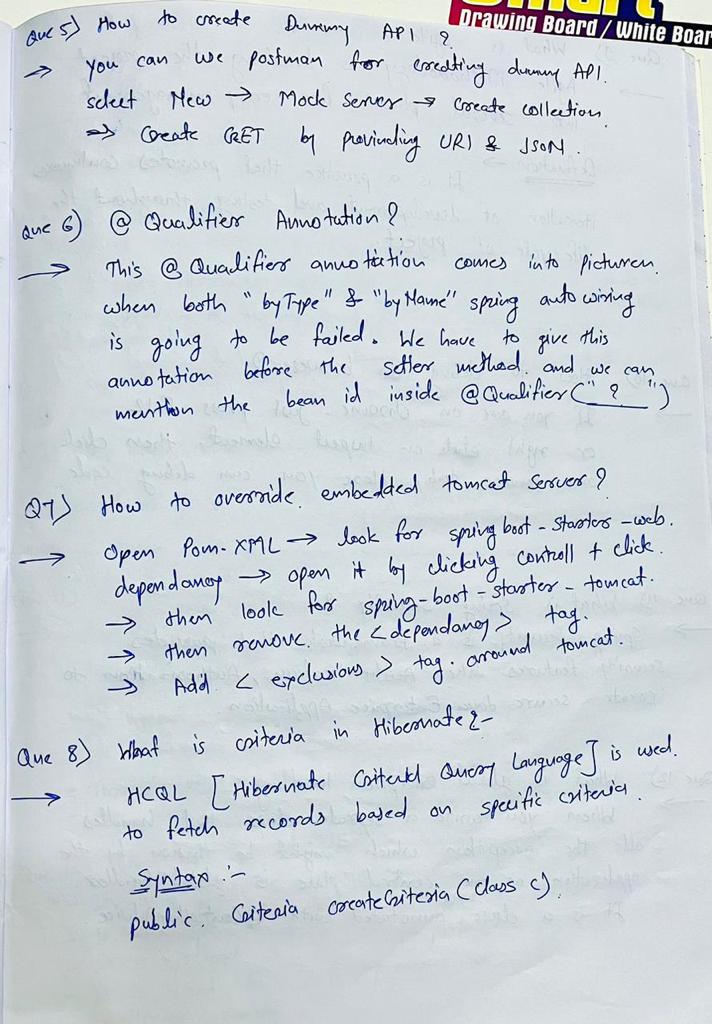 Smart
Drawing Board / White Boar
Que 5) How to create Dummy API ?
→ you can use postman for creating dummy API.
select New → Mock Server → Create collection.
⇒ Create GET by provinding URI & JSON.
Que 6) @ Qualifier Annotation ?
→ This @ Qualifier annotation comes into picturen.
when both "by Type" & "by Name" spring auto wiring
is going to be failed. We have to give this
annotation before the setter method. and we can
menthon the bean id inside @Qualifier ("?")
Q7) How to override embedded tomcat Server ?
→ Open Pom-XML → look for spring boot - Starters - web.
dependancy → open it by clicking controll + click.
→ then look for spring-boot-starter-tomcat.
→ then remove the <dependancy> tag.
→ Add <exclusions> tag. around tomcat.
Que 8) What is criteria in Hibernate ?-
→ HCQL [Hibernate Query Language] is used.
to fetch records based on specific criteria.
Syntax :-
public. Criteria createCriteria (class c).